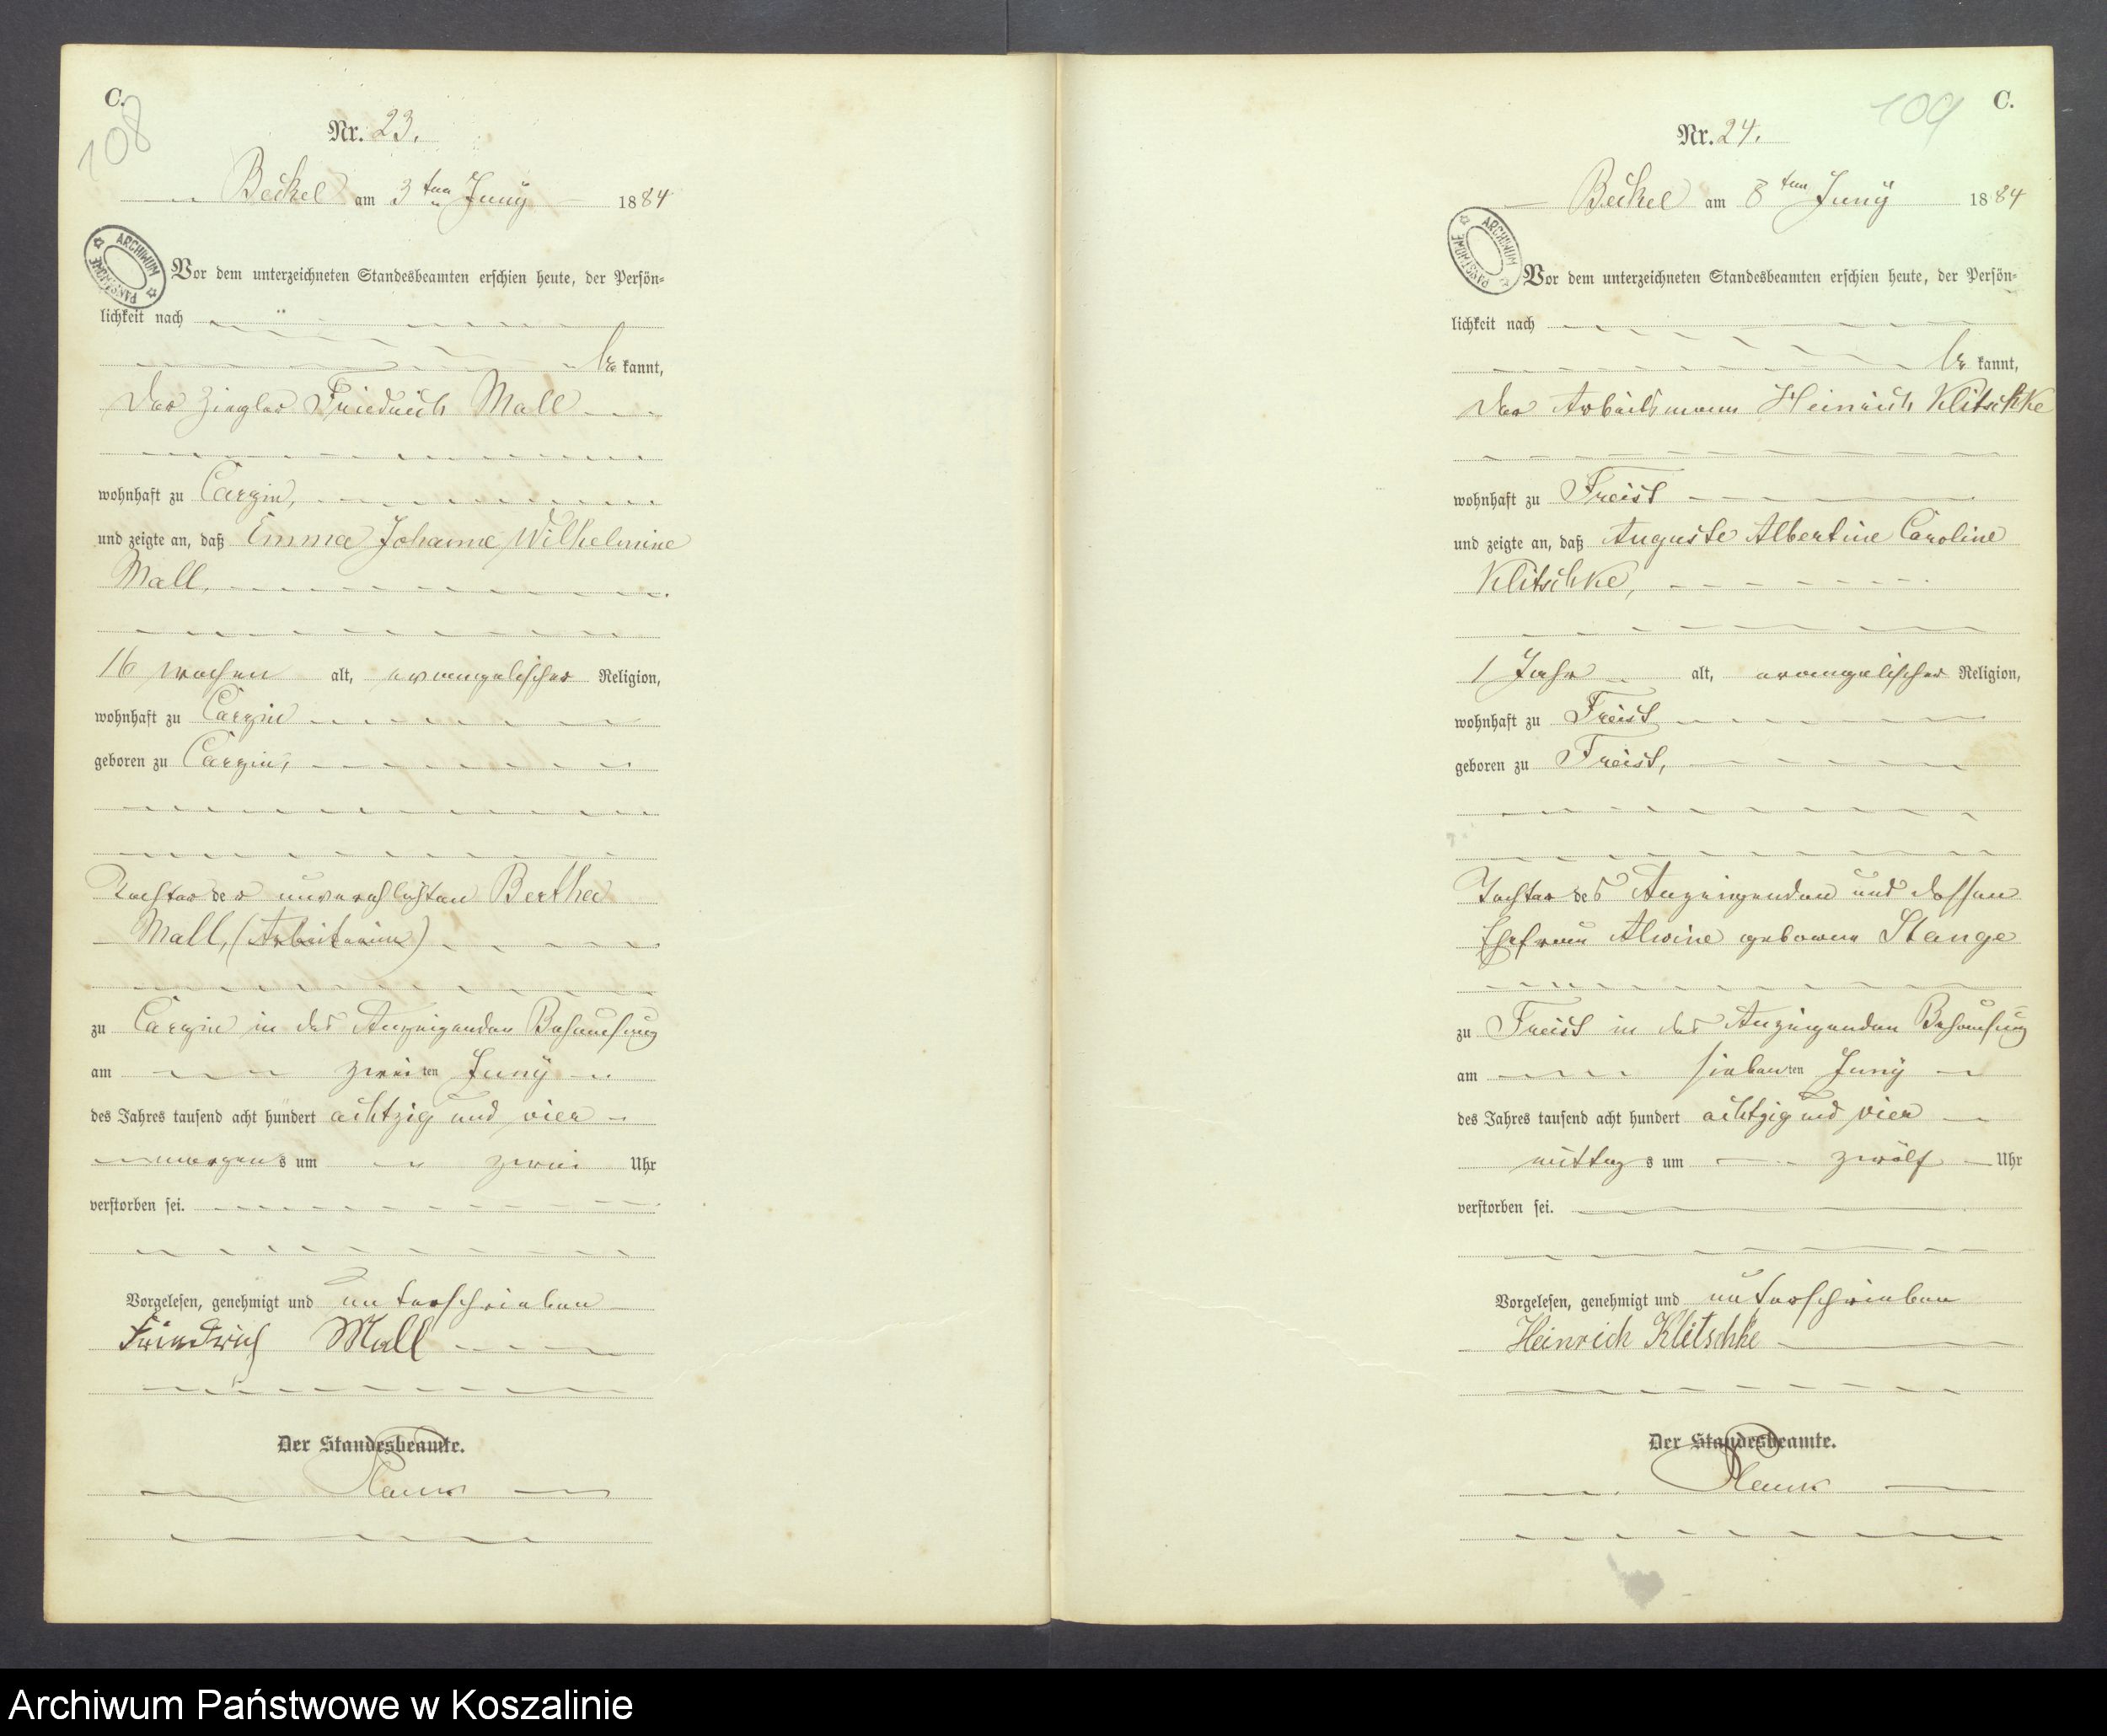 C.
108
Nr. 23.
Beckel am 3ten Juny 1884
ARCHIWUM PAŃSTWOWE
Vor dem unterzeichneten Standesbeamten erschien heute, der Persön-
lichkeit nach
be kannt,
der Ziegler Friedrich Mall
wohnhaft zu Cargin,
und zeigte an, daß Emma Johanne Wilhelmine
Mall,
16 Wochen alt, evangelischer Religion,
wohnhaft zu Cargin
geboren zu Cargin,
Tochter der unverehlichten Bertha
Mall, (Arbeiterin)
zu Cargin in des Anzeigenden Behausung
am zweiten Juny
des Jahres tausend acht hundert achtzig und vier
morgens um zwei Uhr
verstorben sei.
Vorgelesen, genehmigt und unterschrieben
Friedrich Mall
Der Standesbeamte.
C.
109
Nr. 24.
Beckel am 8ten Juny 1884
ARCHIWUM PAŃSTWOWE
Vor dem unterzeichneten Standesbeamten erschien heute, der Persön-
lichkeit nach
be kannt,
der Arbeitsmann Heinrich Klitschke
wohnhaft zu Freist
und zeigte an, daß Auguste Albertine Caroline
Klitschke,
1 Jahr alt, evangelischer Religion,
wohnhaft zu Freist
geboren zu Freist,
Tochter des Anzeigenden und dessen
Ehefrau Alwine geborene Stange
zu Freist in des Anzeigenden Behausung
am siebenten Juny
des Jahres tausend acht hundert achtzig und vier
mittags um zwölf Uhr
verstorben sei.
Vorgelesen, genehmigt und unterschrieben
Heinrich Klitschke
Der Standesbeamte.
Archiwum Państwowe w Koszalinie